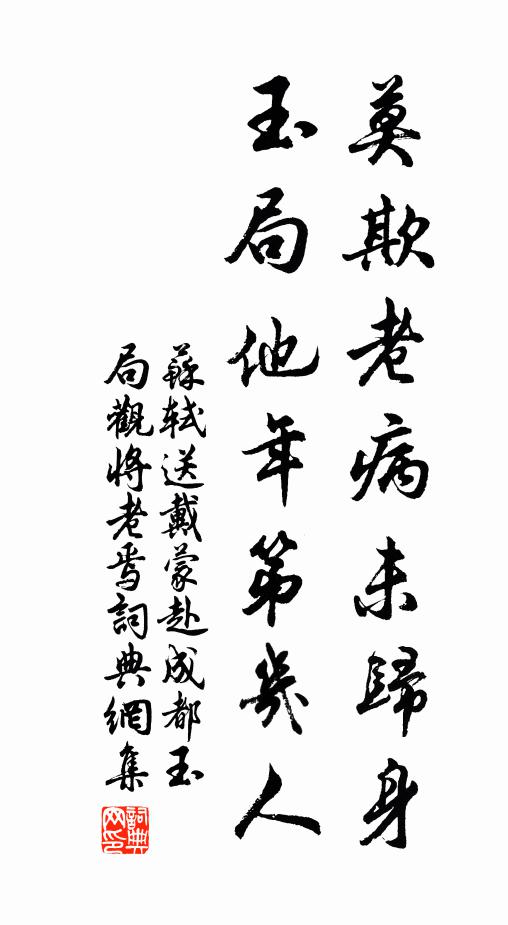 莫欺老病未歸身
玉局他年第幾人
蘇軾送戴蒙赴成都玉
局觀將老焉詞典網集
詞典
网印